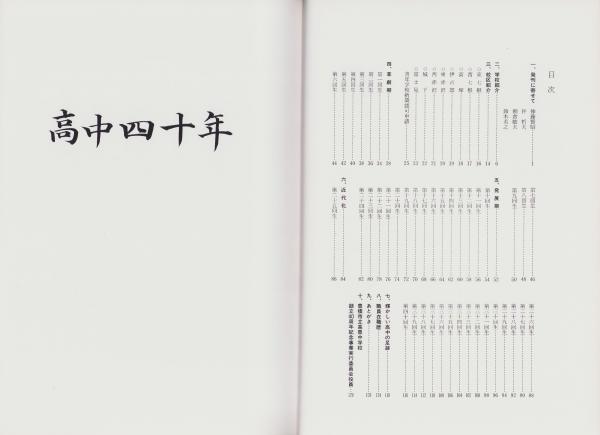 目次
一、発刊に寄せて
朝倉敏夫
二、学校紹介 6
三、校区紹介 14
○高塚
○伊古部
○東赤沢
○西赤沢
○城下
○富士見
四、草創期 28
第一回生
第二回生
第三回生
第四回生 40
第五回生 42
第六回生 44
第七回生 46
第八回生 48
第九回生 50
五、発展期 52
第十回生 54
第十一回生 56
第十二回生 58
第十三回生 60
第十四回生 62
第十五回生 64
第十六回生 66
第十七回生 68
第十八回生 70
第十九回生 72
第二十回生 74
第二十一回生 76
第二十二回生 78
第二十三回生 80
第二十四回生 82
六、近代化 84
第二十五回生 86
第二十六回生 88
第二十七回生 90
第二十八回生 92
第二十九回生 94
第三十回生 96
第三十一回生
第三十二回生
第三十三回生
第三十四回生
第三十五回生
第三十六回生
第三十七回生
第三十八回生
第三十九回生
第四十回生
七、輝かしい高中の足跡
八、職員在職歴
九、あとがき
十、豊橋市立高豊中学校
創立40周年記念事業実行委員会役員
高中四十年